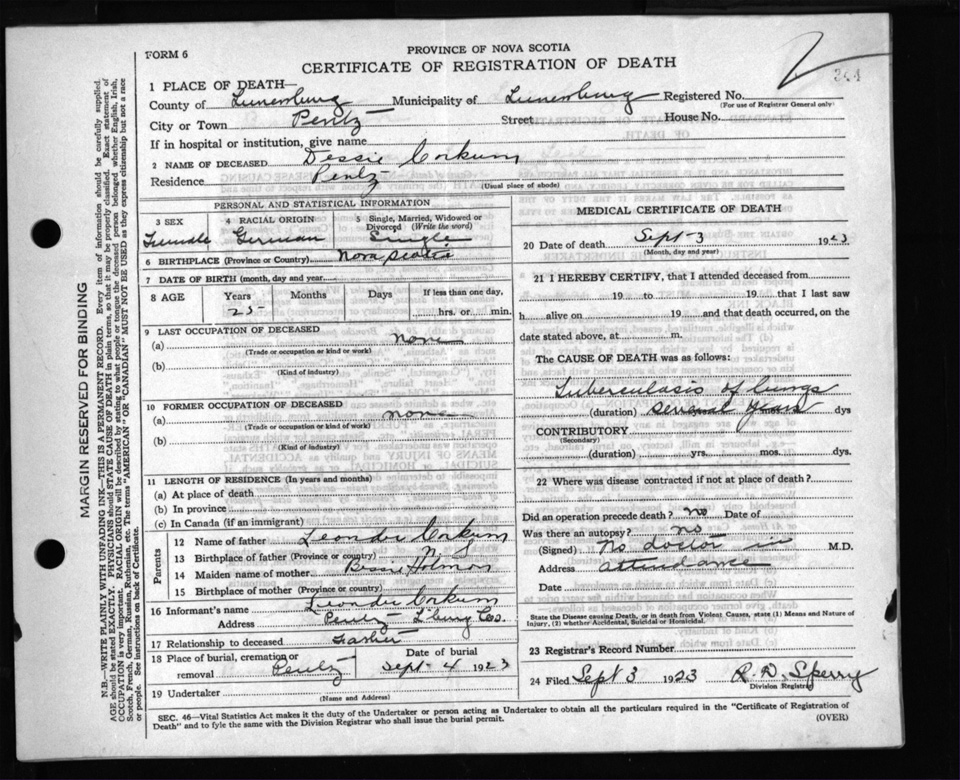 FORM 6
PROVINCE OF NOVA SCOTIA
CERTIFICATE OF REGISTRATION OF DEATH
344
1 PLACE OF DEATH—
County of Lunenburg Municipality of Lunenburg Registered No.
(For use of Registrar General only)
City or Town Pentz Street House No.
If in hospital or institution, give name
2 NAME OF DECEASED Dessie Corkum
Residence Pentz
(Usual place of abode)
PERSONAL AND STATISTICAL INFORMATION
3 SEX 4 RACIAL ORIGIN 5 Single, Married, Widowed or Divorced (Write the word)
Female German Single
6 BIRTHPLACE (Province or Country) Nova Scotia
7 DATE OF BIRTH (month, day and year)
8 AGE Years Months Days If less than one day,
25 hrs. or min.
9 LAST OCCUPATION OF DECEASED
(a) none
(Trade or occupation or kind of work)
(b)
(Kind of industry)
10 FORMER OCCUPATION OF DECEASED
(a) none
(Trade or occupation or kind of work)
(b)
(Kind of industry)
11 LENGTH OF RESIDENCE (In years and months)
(a) At place of death
(b) In province
(c) In Canada (if an immigrant)
Parents
12 Name of father Leander Corkum
13 Birthplace of father (Province or country) N S
14 Maiden name of mother Bessie
15 Birthplace of mother (Province or country)
16 Informant's name Leander Corkum
Address Pentz L'burg Co.
17 Relationship to deceased Father
18 Place of burial, cremation or removal Pentz Date of burial Sept 4 1923
19 Undertaker
(Name and Address)
MEDICAL CERTIFICATE OF DEATH
20 Date of death Sept 3 1923
(Month, day and year)
21 I HEREBY CERTIFY, that I attended deceased from
19 to 19 that I last saw
h alive on 19 and that death occurred, on the
date stated above, at m.
The CAUSE OF DEATH was as follows:
Tuberculasis of lungs
(duration) several years dys
CONTRIBUTORY
(Secondary)
(duration) yrs. mos. dys.
22 Where was disease contracted if not at place of death?
Did an operation precede death? no Date of
Was there an autopsy? no
(Signed) No doctor in M.D.
Address attendance
Date
State the Disease causing Death, or in death from Violent Causes, state (1) Means and Nature of Injury, (2) whether Accidental, Suicidal or Homicidal.
23 Registrar's Record Number
24 Filed Sept 3 1923 R. D. Sperry
Division Registrar
SEC. 46—Vital Statistics Act makes it the duty of the Undertaker or person acting as Undertaker to obtain all the particulars required in the "Certificate of Registration of
Death" and to fyle the same with the Division Registrar who shall issue the burial permit.
(OVER)
MARGIN RESERVED FOR BINDING
N.B.—WRITE PLAINLY WITH UNFADING INK—THIS IS A PERMANENT RECORD. Every item of information should be carefully supplied.
AGE should be stated EXACTLY. PHYSICIANS should STATE CAUSE OF DEATH in plain terms, so that it may be properly classified. Exact statement of
OCCUPATION is very important. RACIAL ORIGIN will be described by stating to what people or tongue the deceased person belonged whether English, Irish,
Scotch, French, German, Russian, Ruthenian, etc. The terms "AMERICAN" OR "CANADIAN" MUST NOT BE USED as they express citizenship but not a race
or people. See instructions on back of Certificate.